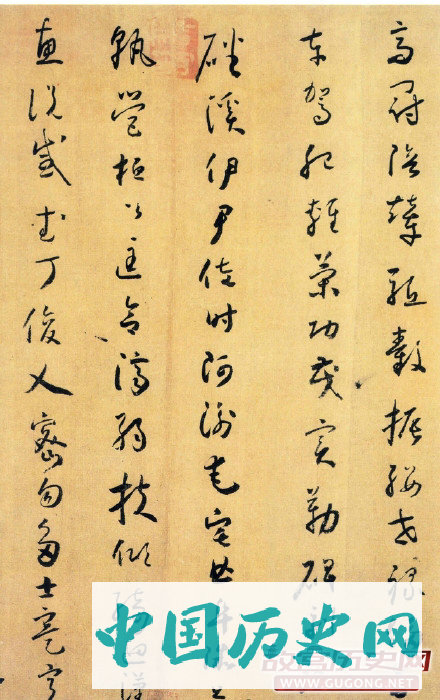 高冠陪輦驅轂振纓世祿
車駕肥輕策功茂實勒碑
磻溪伊尹佐時阿衡奄宅曲
孰營桓公匡合濟弱扶傾綺迴漢
惠說感武丁俊乂密勿多士寔寧
中国历史网
故宫历史网
WWW.GUGONG.NET